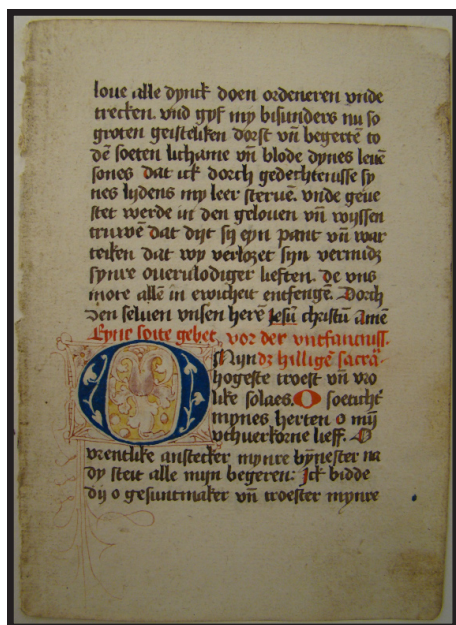 loue alle dynck doen ordeneren vnde
trecken. vnd gyf my bisunders nu so
groten geisteliken dorst vn̄ begertē to
dē soeten lichame vn̄ blode dynes leuē
sones dat ick dorch gedechtenisse sy
nes lydens my leer steruē. vnde geue
stet werde in den gelouen vn̄ wyssen
truwē dat dyt sy eyn pant vn̄ war
teiken dat wy verlozet syn vermidz
synre ouerulodiger lieften. de vns
mote allē in ewicheit entfengē. Dorch
den seluen vnsen herē Jesū christū amē
Eyne soite gebet, vor der vntfancniss.
O Myn dz hilligē sacrā
hogeste troest vn̄ vro
like solaes. O soeticht
mynes herten o mij
vthuerkorne lieff. O
vrentlike anstecker mynre bynester na
dy steit alle mijn begeren: Ick bidde
dij o gesuntmaker vn̄ troester mynre